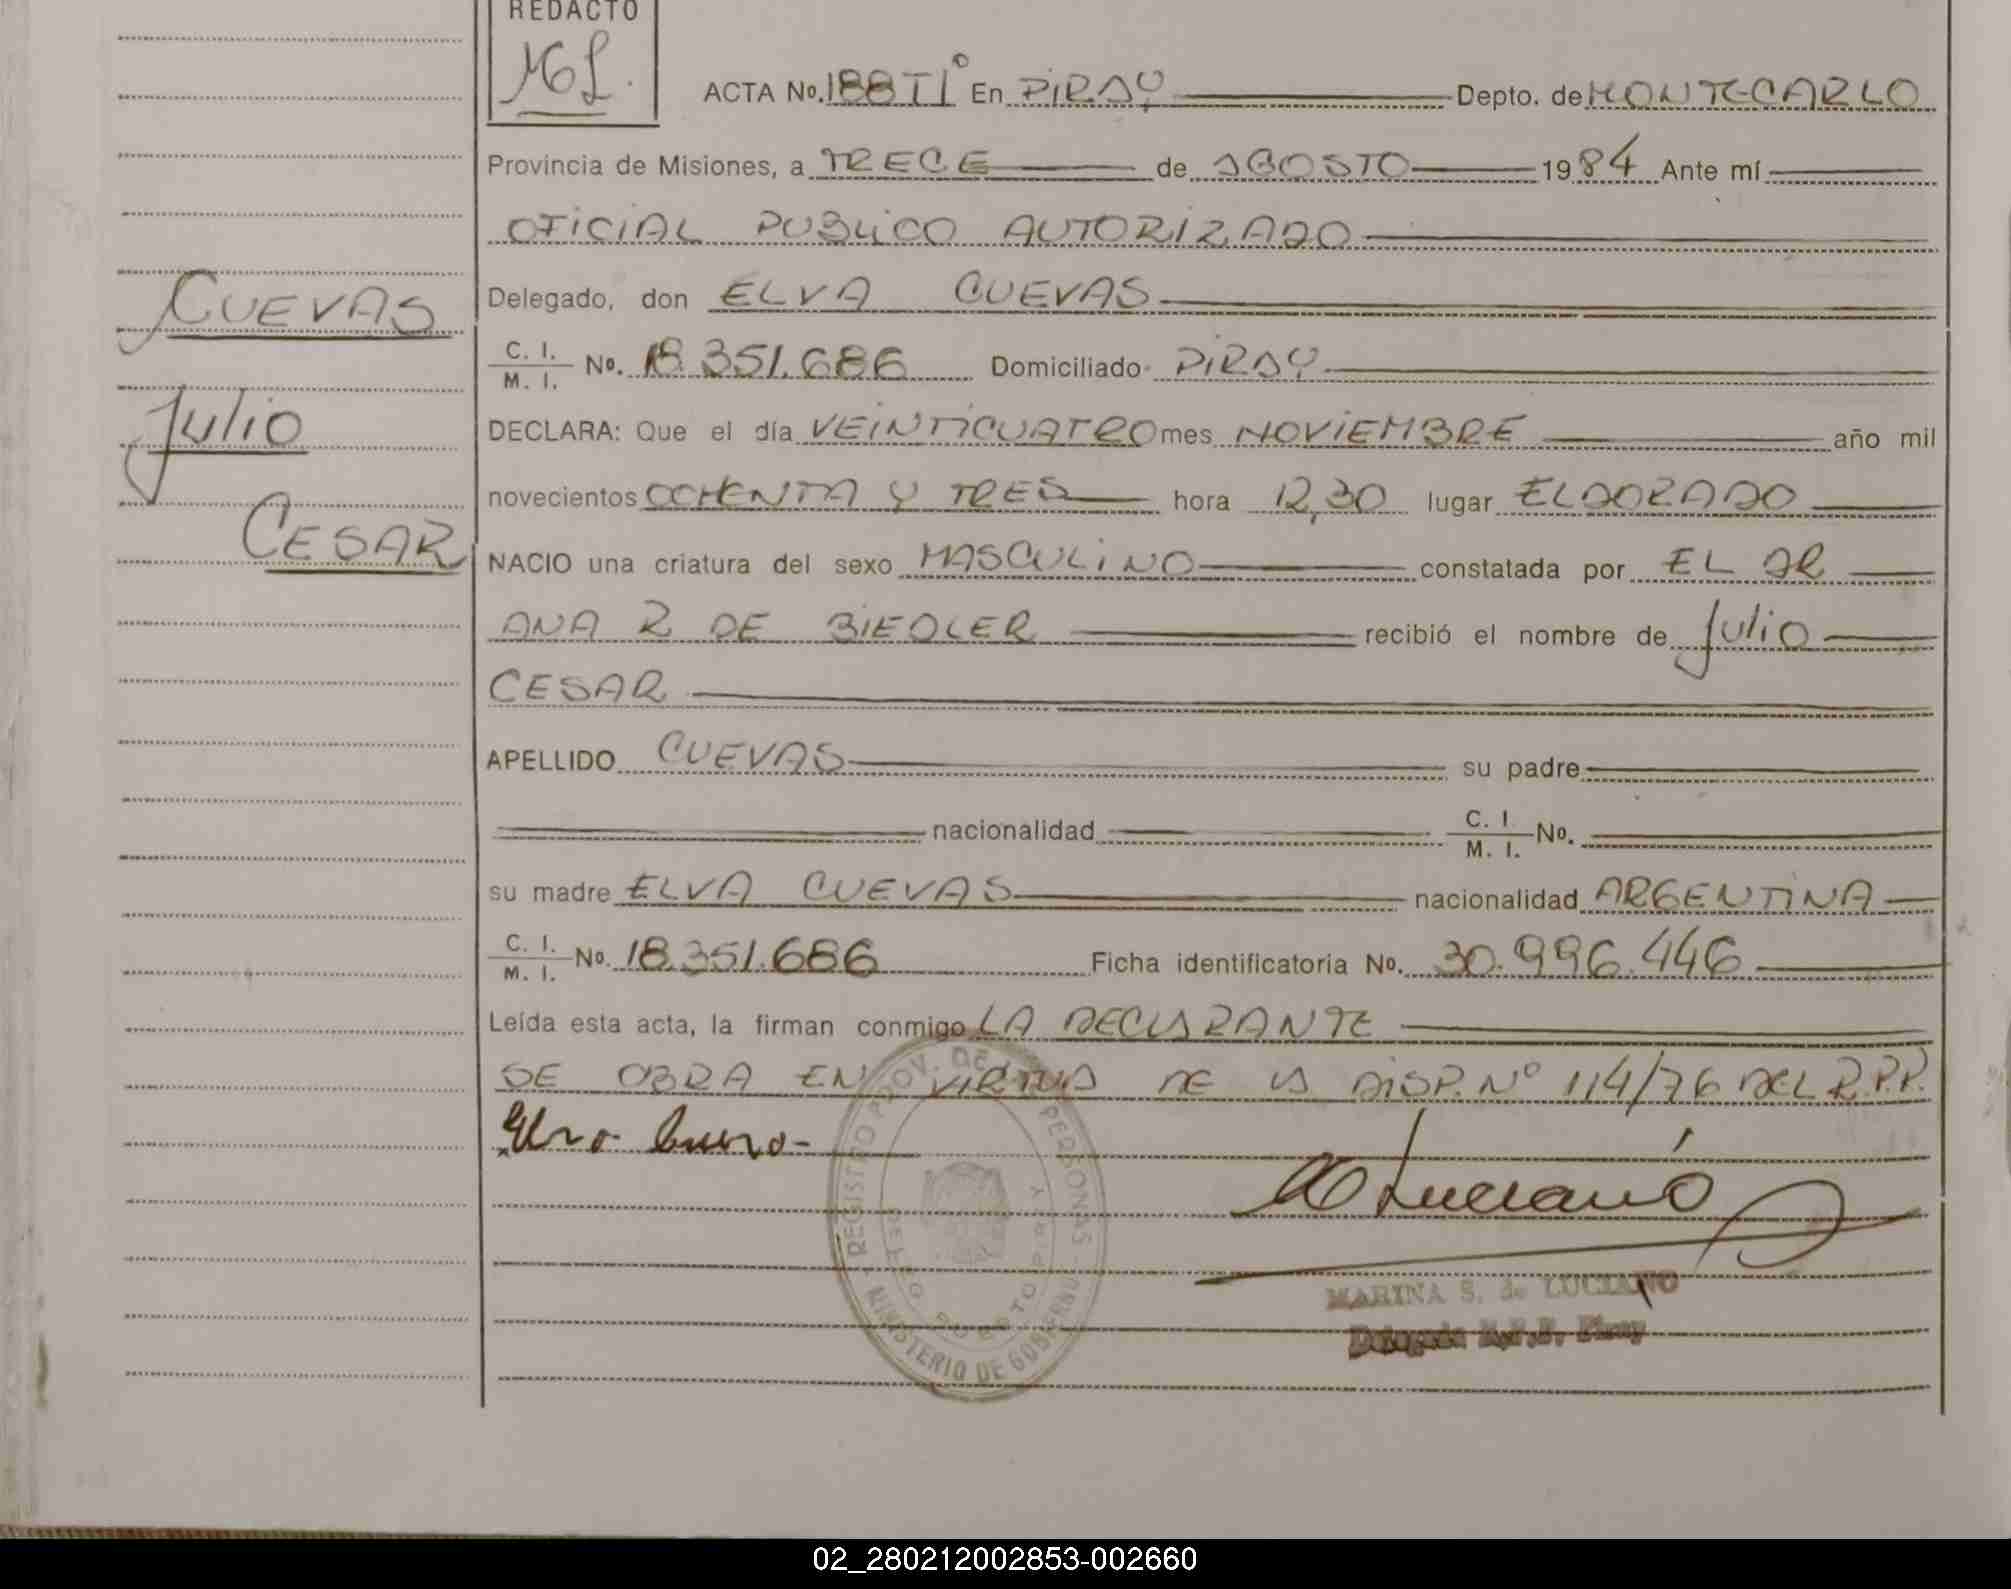 REDACTO
ML.
ACTA No. 188 TI° En PIRAY Depto. de MONTECARLO
Provincia de Misiones, a TRECE de AGOSTO 1984 Ante mí
OFICIAL PUBLICO AUTORIZADO
CUEVAS
Delegado, don ELVA CUEVAS
C. I. M. I. No. 18.351.686 Domiciliado PIRAY
Julio
DECLARA: Que el día VEINTICUATRO mes NOVIEMBRE año mil
novecientos OCHENTA Y TRES hora 12,30 lugar ELDORADO
CESAR
NACIO una criatura del sexo MASCULINO constatada por EL DR
ANA R DE BIEDLER recibió el nombre de Julio
CESAR
APELLIDO CUEVAS su padre
nacionalidad C. I. M. I. No.
su madre ELVA CUEVAS nacionalidad ARGENTINA
C. I. M. I. No. 18.351.686 Ficha identificatoria No. 30.996.446
Leída esta acta, la firman conmigo LA DECLARANTE
SE OBRA EN VIRTUD DE LA DISP. N° 114/76 DEL R.P.P.
REGISTRO PROV. DE PERSONAS
MINISTERIO DE GOBIERNO
PUERTO PIRAY
Luciano
MARINA S. de LUCIANO
Delegada R.P.P. Piray
02_280212002853-002660